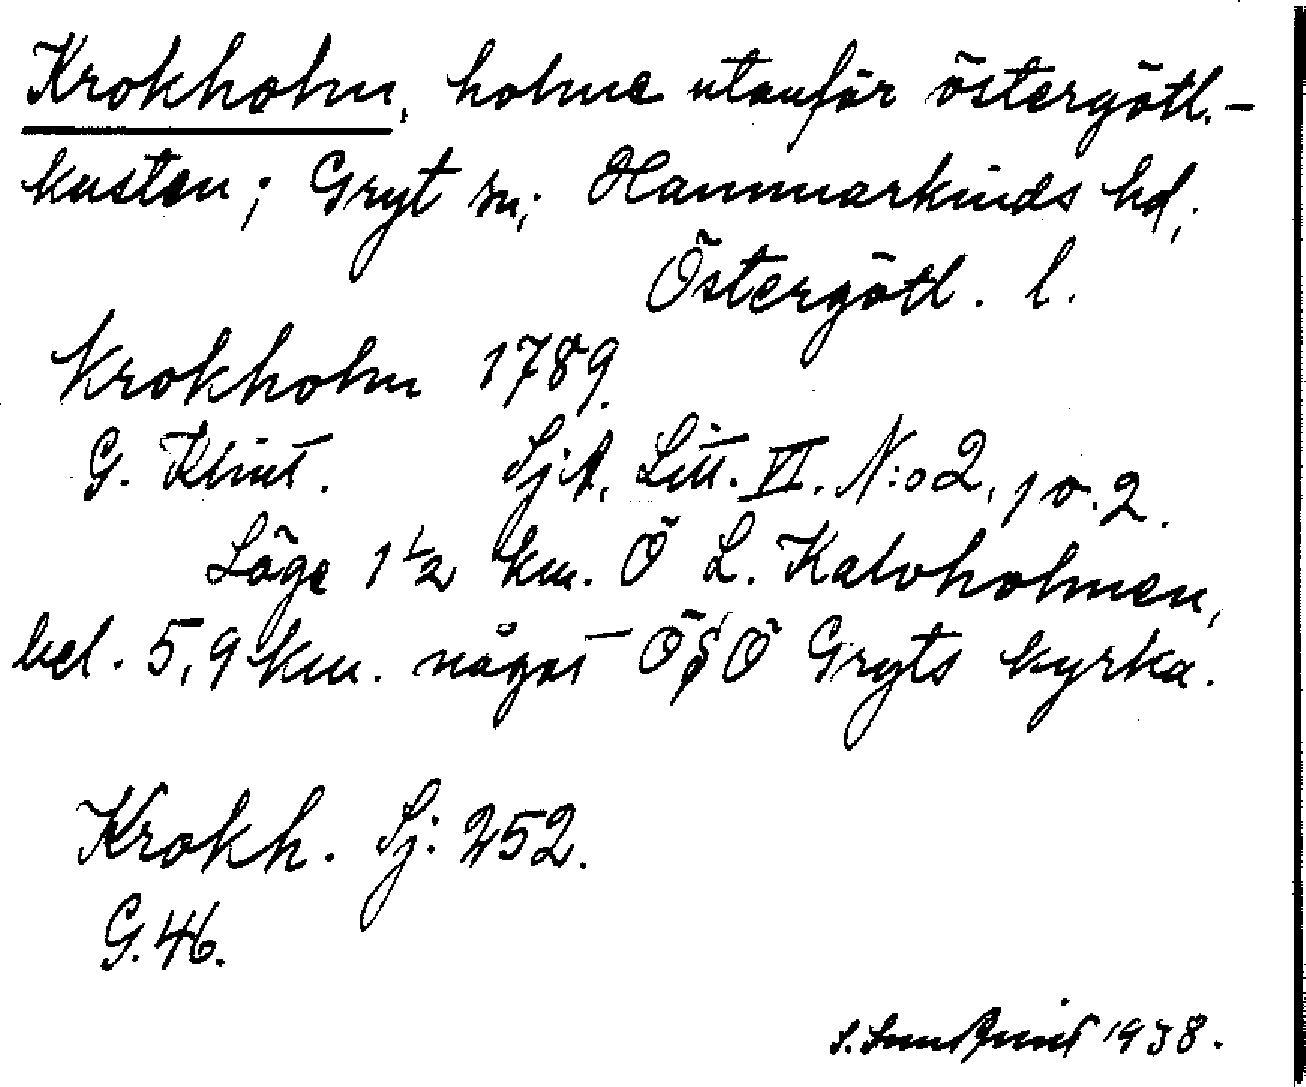 Krokholm, holme utanför östergötl.-
kusten; Gryt sn; Hammarkinds hd;
Östergötl. l.
Krokholm 1789.
G. Klint. Sjk, Litt. VI. N:o 2, 1 o. 2.
Läge 1 1/2 km. Ö L. Kalvholmen,
bel. 5,9 km. något ÖSÖ Gryts kyrka.
Krokh. Sj: 252.
G. 46.
1938.